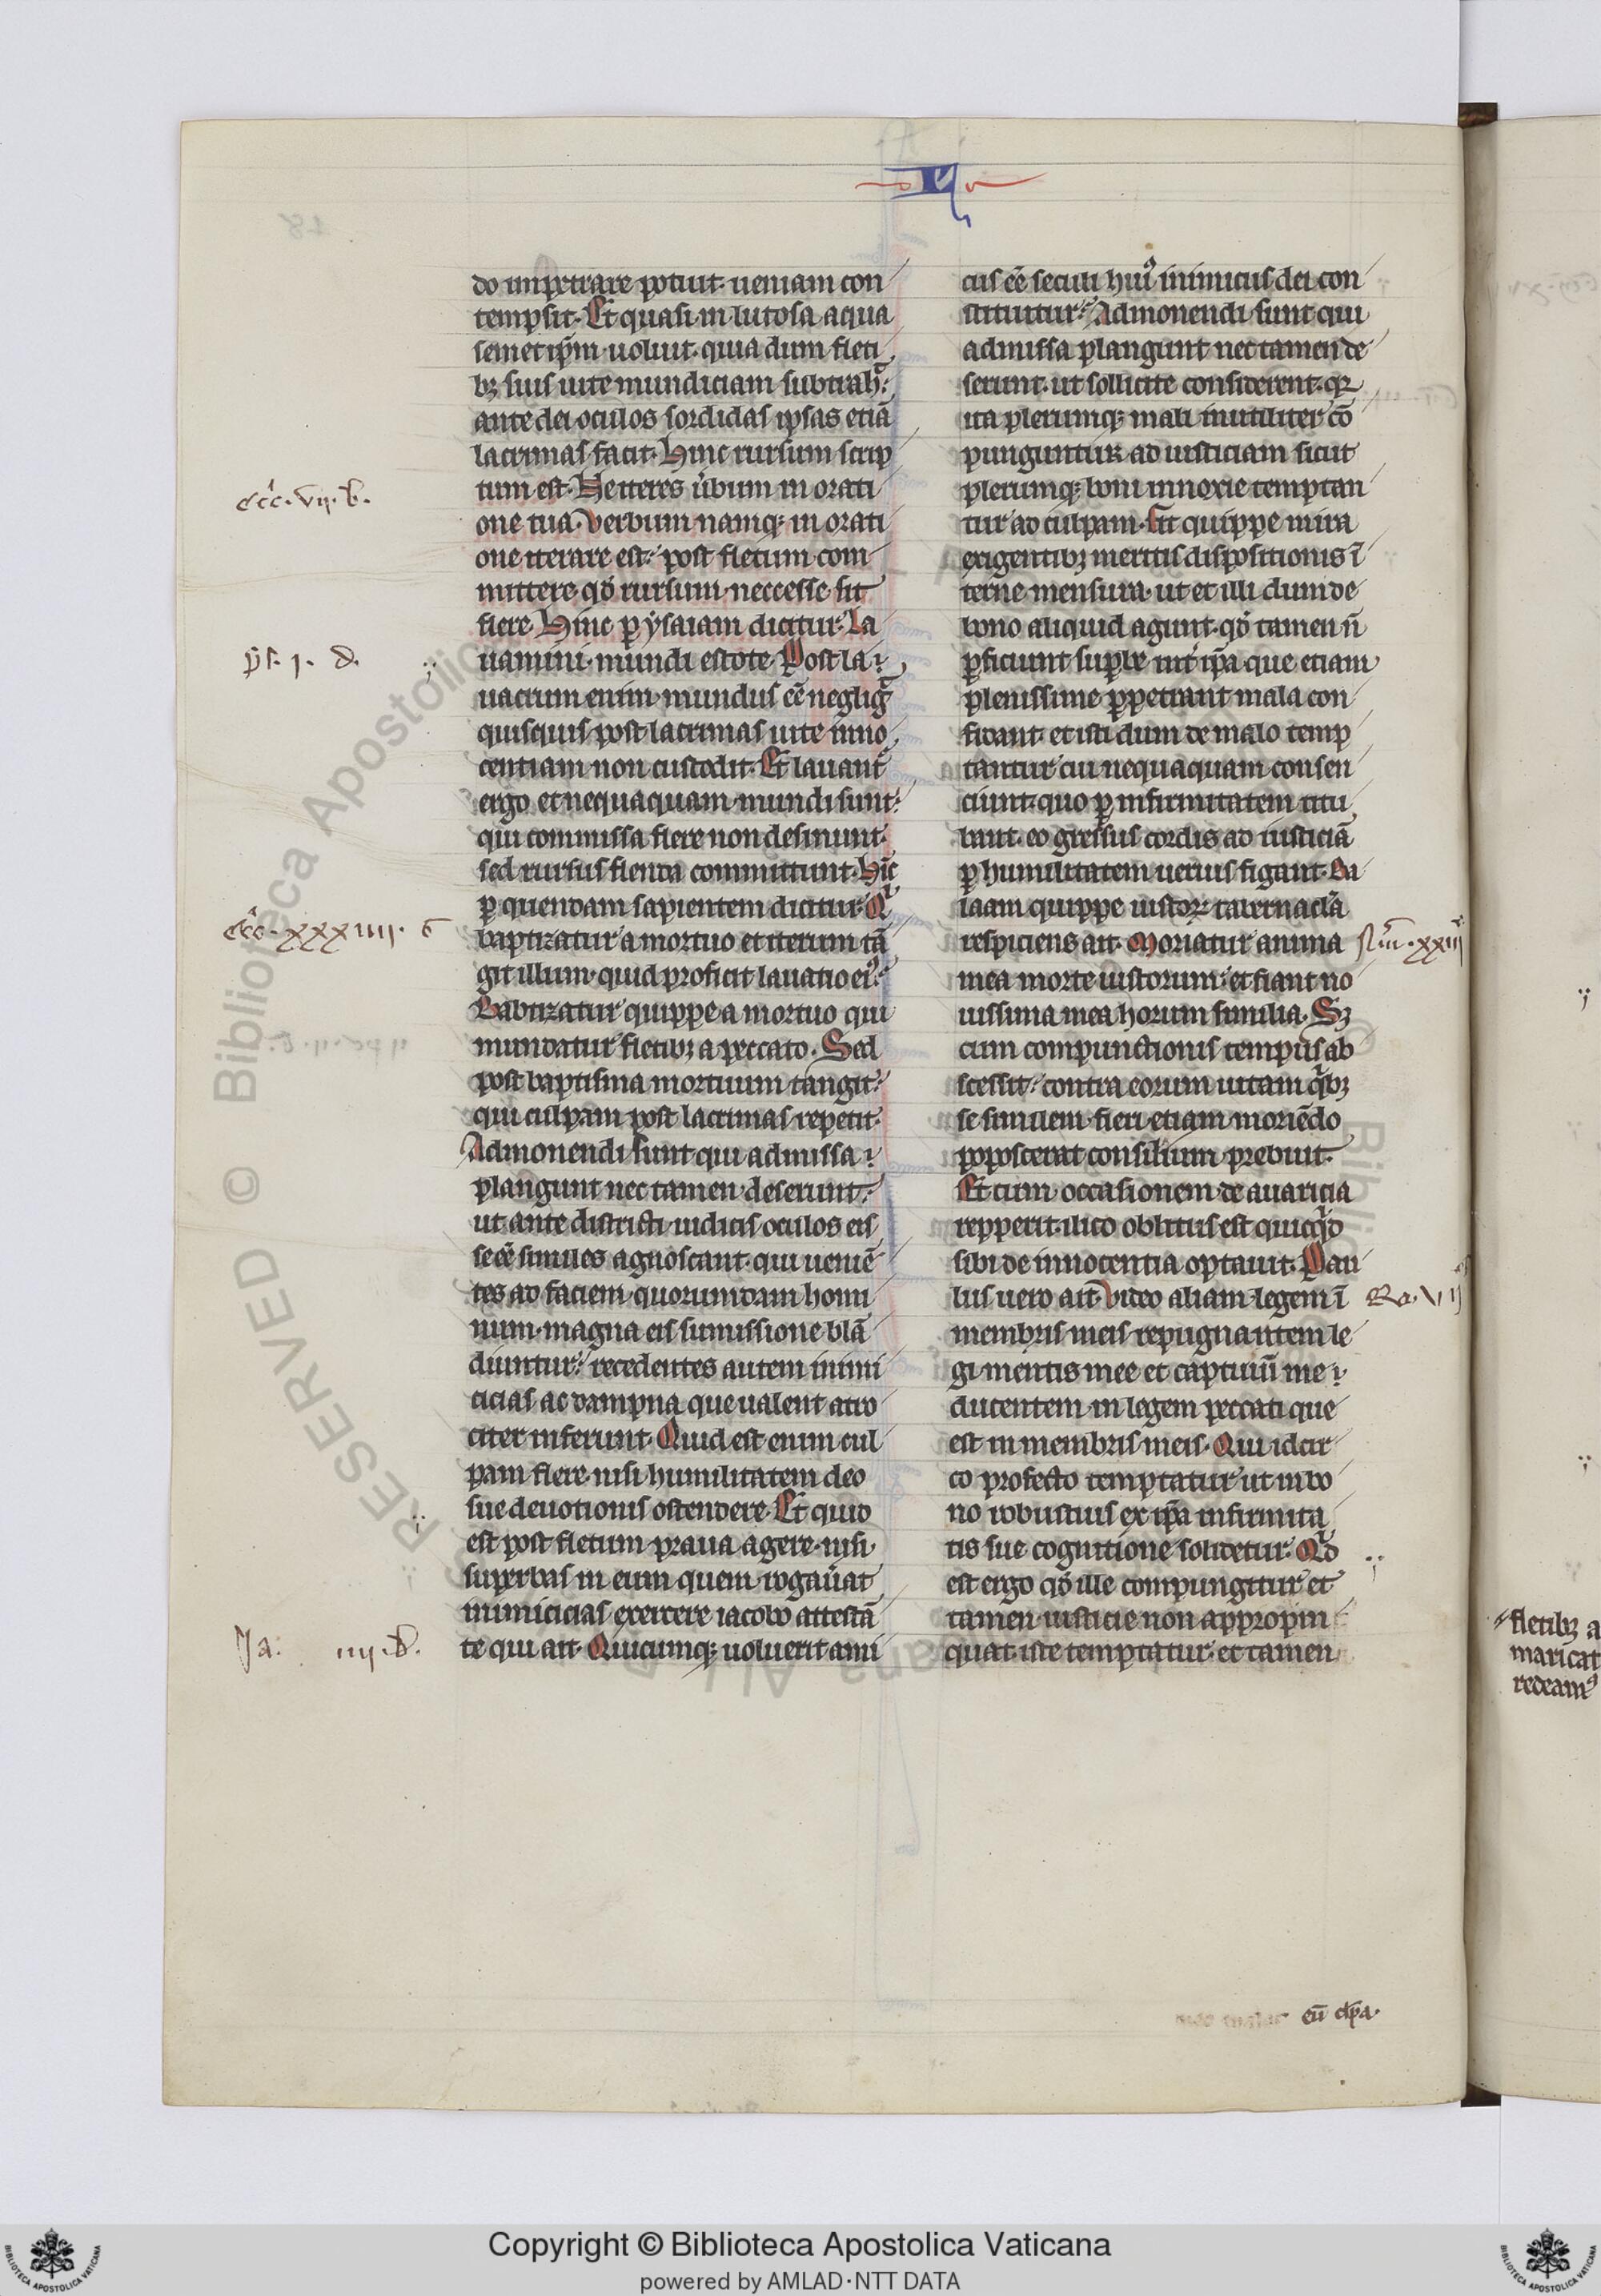 do impetrare potuit. ueniam con
tempsit. Et quasi in lutosa aqua
semet ip̄m uoluit. quia dum fleti
bꝫ suis uite mundiciam subtrah᷑:
ante dei oculos sordidas ipsas etiā
lacrimas facit. Hinc rursum scrip
tum est. Ne iteres ůbum in orati
one tua. Verbum namqꝫ in orati
one iterare est: post fletum com
mittere. qd̓ rursum neccesse sit
flere. Hinc ꝑ ysaiam dicitur. La
uamini mundi estote. Post la
uacrum enim mundus eē neglig᷑
quisquis post lacrimas uite inno
centiam non custodit. Et lauant᷑
ergo et nequaquam mundi sunt:
qui commissa flere non desinunt.
sed rursus flenda committunt. Hīc
ꝑ quendam sapientem dicitur. Qͥ
baptizatur a mortuo et iterum tā
git illum. quid proficit lauatio eiꝰ:
Babtizatur quippe a mortuo qui
mundatur fletibꝫ a peccato. Sed
post baptisma mortuum tangit:
qui culpam post lacrimas repetit.
Admonendi sunt qui admissa
plangunt nec tamen deserunt:
ut ante districti iudicis oculos eis
se eē similes agnoscant. qui ueniē
tes ad faciem quorumdam homi
num. magna eis sumissione blā
diuntur: recedentes autem inimi
cicias ac dampna que ualent atro
citer inferunt. Quid est enim cul
pam flere. nisi humilitatem deo
sue deuotionis ostendere. Et quid
est post fletum praua agere. nisi
superbas in eum quem rogau̓at
inimicicias exercere iacobo attestā
te qui ait. Quicumqꝫ uoluerit ami
cus eē seculi huiꝰ inimicus dei con
stituitur: Admonendi sunt qui
admissa plangunt nec tamen de
serunt. ut sollicite considerent. qꝛ
ita plerumqꝫ mali inutiliter cō
punguntur ad iusticiam sicut
plerumqꝫ boni innoxie temptan
tur ad culpam. Fit quippe mira
exigentibꝫ meritis dispositionis ī
terne mensura. ut et illi dum de
bono aliquid agunt. qd̓ tamen ñ
ꝑficiunt suꝑbe int̓ ip̄a que etiam
plenissime ꝑpetrant mala con
fidant. et isti dum de malo temp
tantur cui nequaquam consen
ciunt. quo ꝑ infirmitatem titu
bant. eo gressus cordis ad iusticiā
ꝑ humilitatem uerius figant. Ba
laam quippe iustoꝝ tabernacl̓a
respiciens ait. Moriatur anima
mea morte iustorum: et fiant no
uissima mea horum similia. Sꝫ
cum compunctionis tempus ab
scessit: contra eorum uitam qͥbꝫ
se similem fieri etiam moriēdo
poposcerat consilium prebuit.
Et cum occasionem de auaricia
repperit. ilico oblitus est quicqͥd
sibi de innocentia optauit. Pau
lus uero ait. Video aliam legem ī
membris meis repugnantem le
gi mentis mee et captiuū me
ducentem in legem peccati que
est in membris meis. Qui idcir
co profecto temptatur ut in bo
no robustius ex ip̄a infirmita
tis sue cognitione solidetur. Qͥd
est ergo qd̓ ille compungitur et
tamen iusticie non appropin
quat. iste temptatur. et tamen
eccͥ. vij. b.
ys. j. d.
eccͥ. xxxiiij. c
Ja. iiij. b.
eū cl̓pa.
fletibꝫ a
maricat
redeamꝰ
Copyright © Biblioteca Apostolica Vaticana
powered by AMLAD·NTT DATA